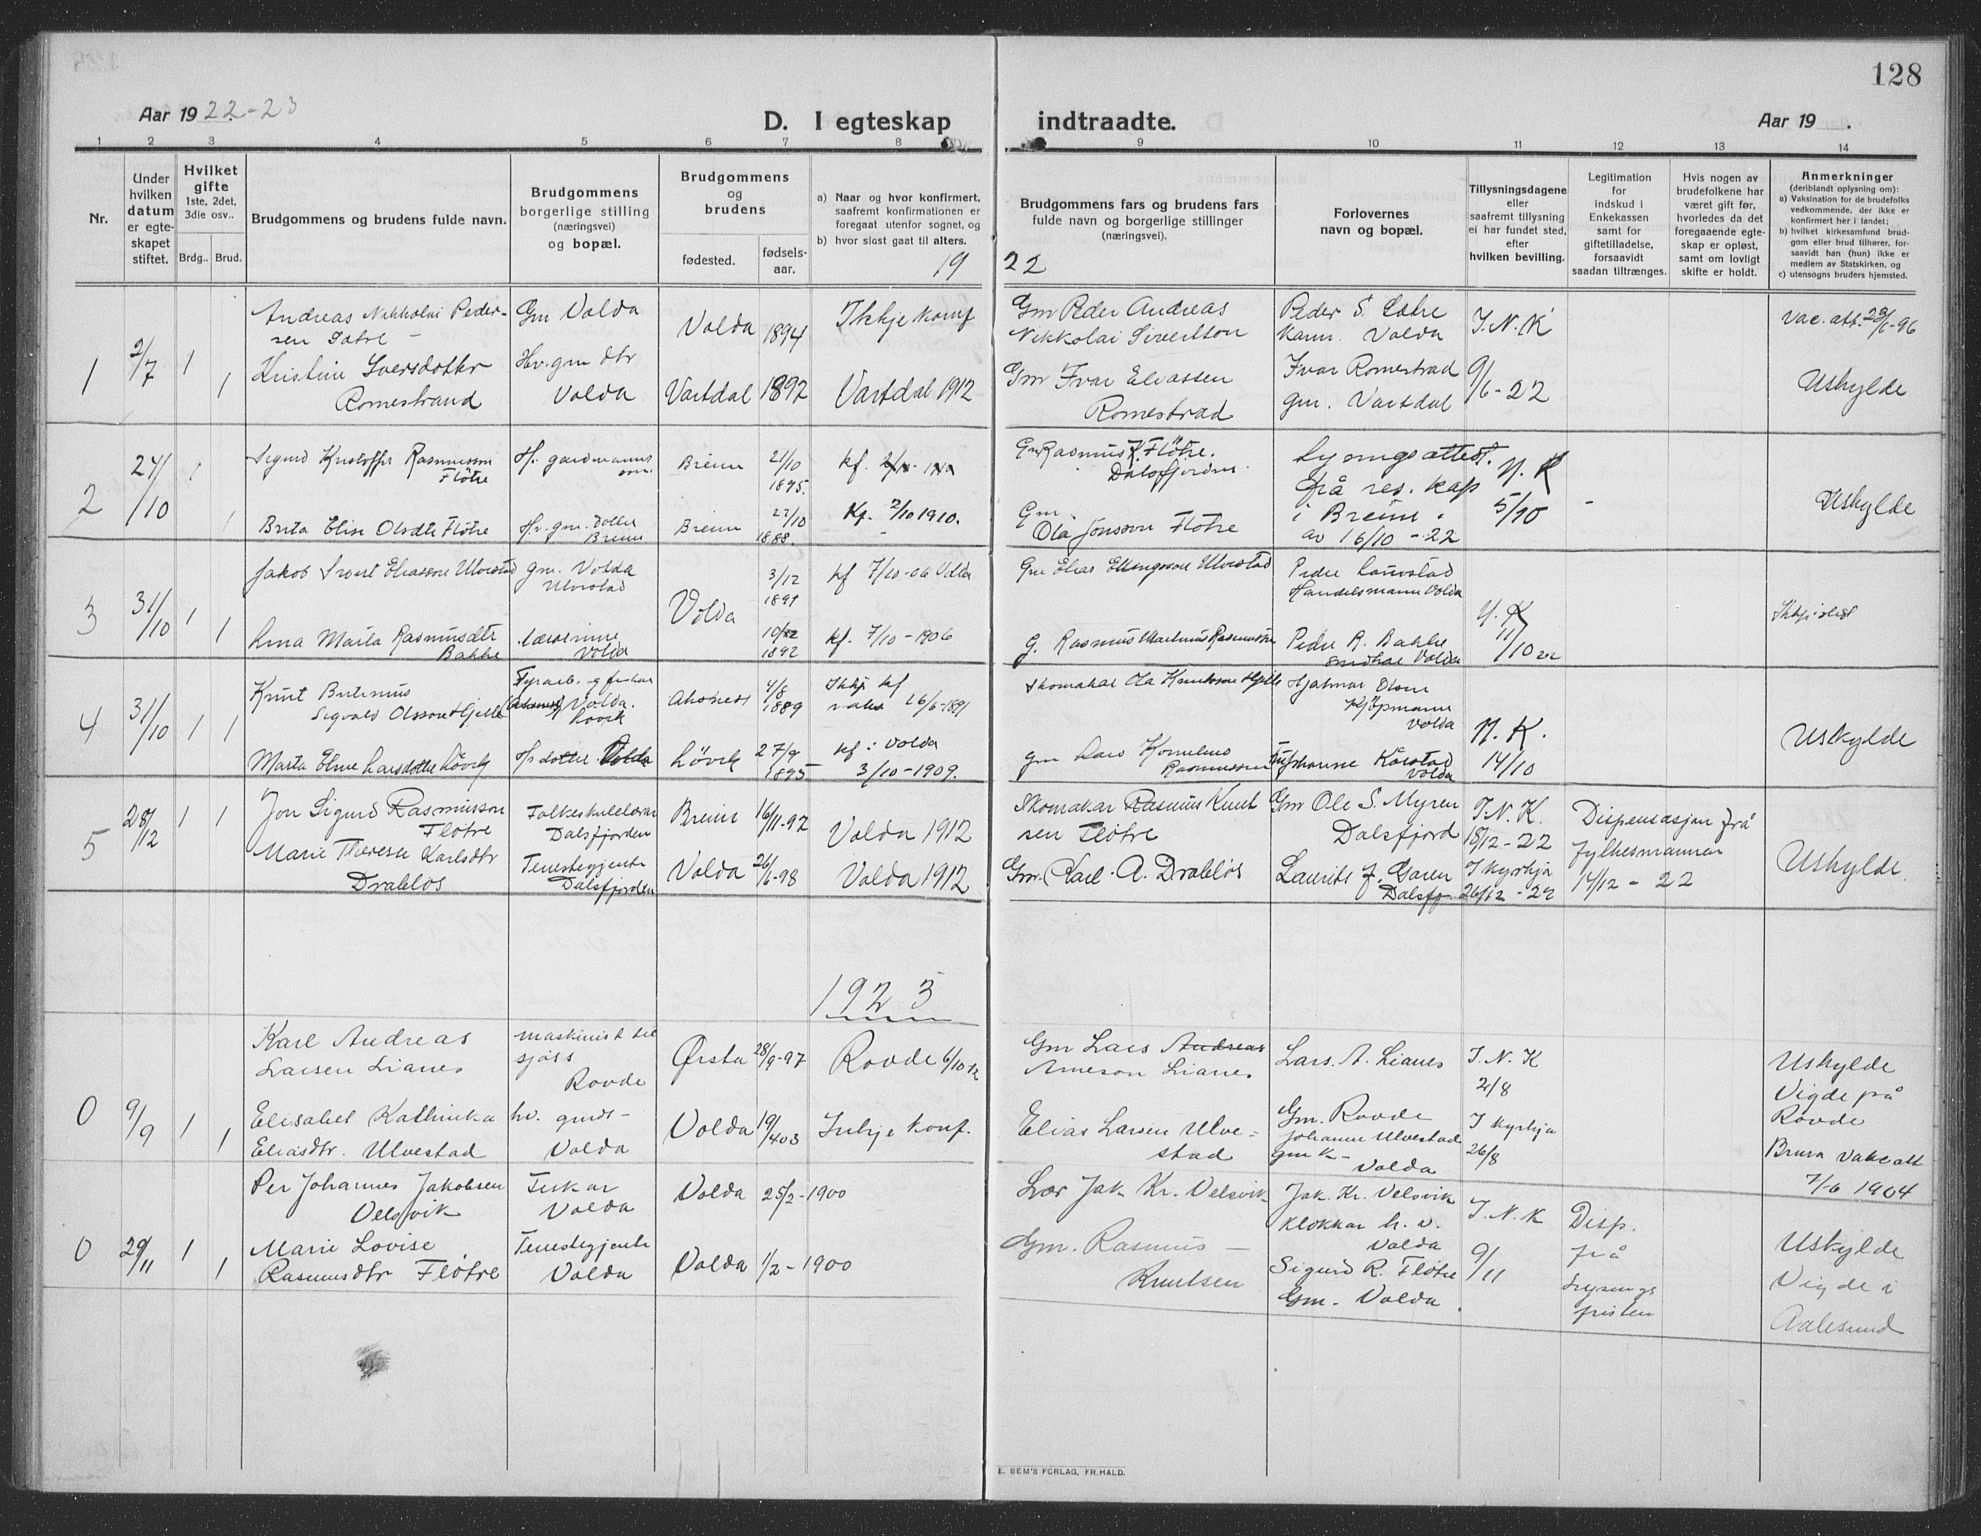 128
Aar 19 22-23
D. I egteskap
indtraadte.
Aar 19 .
1 2 3 4 5 6 7 8
9 10 11 12 13 14
Nr.
Under
hvilken
datum
er egte-
skapet
stiftet.
Hvilket
gifte
1ste, 2det,
3die osv..
Brdg.. Brud.
Brudgommens og brudens fulde navn.
Brudgommens
borgerlige stilling
(næringsvei)
og bopæl.
Brudgommens
og
brudens
fødested.
fødsels-
aar.
a) Naar og hvor konfirmert,
saafremt konfirmationen er
foregaat utenfor sognet, og
b) hvor sidst gaat til alters.
Brudgommens fars og brudens fars
fulde navn og borgerlige stillinger
(næringsvei).
Forlovernes
navn og bopæl.
Tillysningsdagene
eller
saafremt tillysning
ei har fundet sted,
efter
hvilken bevilling.
Legitimation
for
indskud i
Enkekassen
samt for
giftetilladelse,
forsaavidt
saadan tiltrænges.
Hvis nogen av
brudefolkene har
været gift før,
hvorledes da det
foregaaende egte-
skap er opløst,
samt om lovligt
skifte er holdt.
Anmerkninger
(deriblandt oplysning om):
a) Vaksination for de brudefolks
vedkommende, der ikke er
konfirmert her i landet;
b) hvilket kirkesamfund brud-
gom eller brud tilhører, for-
saavidt han (hun) ikke er
medlem av Statskirken, og
c) utensogns bruders hjemsted.
19 22
1 2/7 1 Andreas Nikkolai Peder-
sen
Gm Volda Volda 1894 Ikkje konf
Gm Peder Andreas
Nikkolai Sivertson
Peder S.
Volda
I. N. K
Vac. att.
1 Kristine Iversdotter
Romestrand
Hv. gm dtr
Volda
Vartdal 1892 Vartdal 1912
Gm Ivar Eliassen
Romestrad
Ivar Romestrad
gm. Vartdal
9/6-22
Uskylde
2 24/10 1 Sigurd Kristoffer Rasmusson
Fløtre
Breim 21/10
1895.
kf.
Gm Rasmus K. Fløtre.
Dalsfjorden.
Lysingsattest.
frå res. kap
i Breim.
av 16/10-22
N. K
5/10
Uskylde
1 Brita Elise Olsdtr Fløtre Hv. gm. dotter
Breim
Breim 22/10
1888.
Kf. 2/10 1910.
Gm.
Ola Jonsson Fløtre
3 31/10 1 Jakob Sivert Eliasson Ulvestad gm. Volda
Ulvestad
Volda
3/12
1891
kf 7/10-06 Volda
Gm Elias Ellingsson Ulvestad
Peder Lauvstad
Handelsmann Volda
N. K
11/10 22
1 Anna Marta Rasmusdtr
Bakke
Lærarinne
Volda
1892
kf. 7/10-1906
g. Rasmus Martinus Rasmussen
Peder R. Bakke
Volda
4 31/10 1 1 Knut
Sigvald Olsson Hjelle
Volda.
Løvik
4/8
1889
Ikkje kf
16/6-1891
Skomakar Ola Knutsson Hjelle
Hjalmar Olsen
Kjøpmann
Volda
N. K.
14/10
Uskylde
Marta Eline Larsdotter Løvik
Løvik 27/9
1895
kf i Volda
3/10-1909.
gm Lars Kornelius
Rasmussen
Johanne Kårstad
Volda
5 28/12 1 1 Jon Sigurd Rasmusson
Fløtre
Folkeskulelærar
Dalsfjorden
Breim 16/11-97 Volda 1912
Skomakar Rasmus Knut
sen Fløtre
Gm Ole S. Myren
Dalsfjord
I. N. K.
18/12-22
Dispensasjon frå
fylkesmannen
14/12-22
Uskylde.
Marie Therese Karlsdtr
Drabløs
Tenestegjente
Dalsfjorden
Volda 26/6-98 Volda 1912
Gm. Karl A. Drabløs
Laurits J.
Dalsfj.
I kyrkja
26/12-22
1923
0 9/9 1 Karl Andreas
Larsen Lianes
maskinist til
sjøss
Rovde
Ørsta 28/9-97 Rovde 6/10 12
Gm Lars Andreas
Arneson Lianes
Lars. A. Lianes
I. N. K
2/8
Uskylde
Vigde på
Rovde
1 Elisabet Kathinka
Eliasdtr. Ulvestad
hv. gmds-
Volda
Volda 19/4 03 Inkje konf.
Elias Larsen Ulve-
stad
Gm. Rovde
Johannes Ulvestad
Gm K-
Volda
I kyrkja
26/8
Brura vakc att
7/6 1904
0 29/11 1 Per Johannes Jakobsen
Velsvik
Fiskar
Volda
Volda 25/2-1900
Lær Jak Kr. Velsvik
Jak. Kr. Velsvik
Klokkar h. v.
Volda
I. N. K
9/11
Disp.
frå
Lysings
fristen
Uskylde
Vigde i
Aalesund
1 Marie Lovise
Rasmusdtr Fløtre
Tenestegjente
Volda
Volda 1/2-1900
Gm. Rasmus
Knutsen
Sigurd R. Fløtre
Gm. Volda.
E. SEM'S FORLAG, FR.HALD.